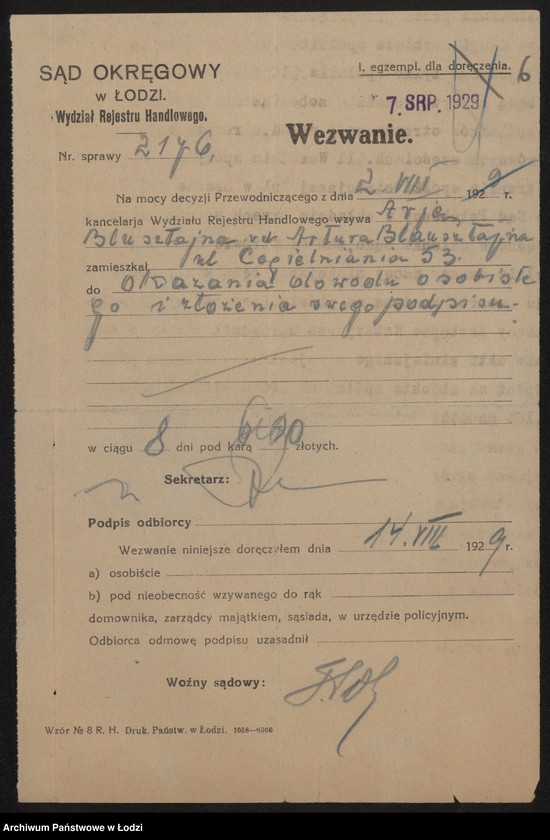 I. egzempl. dla doręczenia. 6
SĄD OKRĘGOWY
w ŁODZI.
Wydział Rejestru Handlowego.
7. SRP. 1929
Wezwanie.
Nr. sprawy 2176
Na mocy decyzji Przewodniczącego z dnia 2 VIII 1929 r.
kancelarja Wydziału Rejestru Handlowego wzywa Arje
Blusztajna vel Artura Blausztajna
zamieszkał ul Cegielniania 53.
do okazania dowodu osobiste
go i złożenia swego podpisu
w ciągu 8 dni pod karą złotych.
Sekretarz:
Podpis odbiorcy
Wezwanie niniejsze doręczyłem dnia 14. VIII 1929 r.
a) osobiście
b) pod nieobecność wzywanego do rąk
domownika, zarządcy majątkiem, sąsiada, w urzędzie policyjnym.
Odbiorca odmowę podpisu uzasadnił
Woźny sądowy:
Wzór № 8 R. H. Druk. Państw. w Łodzi. 1658—6300
Archiwum Państwowe w Łodzi